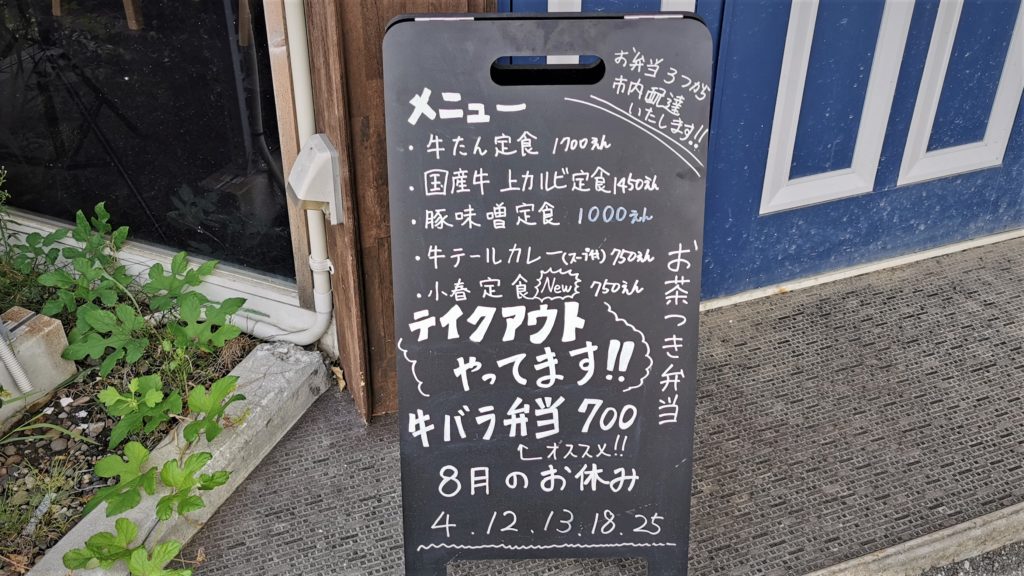 お弁当3つから
市内配達
いたします!!
メニュー
・牛たん定食 1700えん
・国産牛 上カルビ定食 1450えん
・豚味噌定食 1000えん
・牛テールカレー(スープ付) 750えん
・小春定食 New 750えん
テイクアウト
やってます!!
お茶つき弁当
牛バラ弁当 700
オススメ!!
8月のお休み
4.12.13.18.25